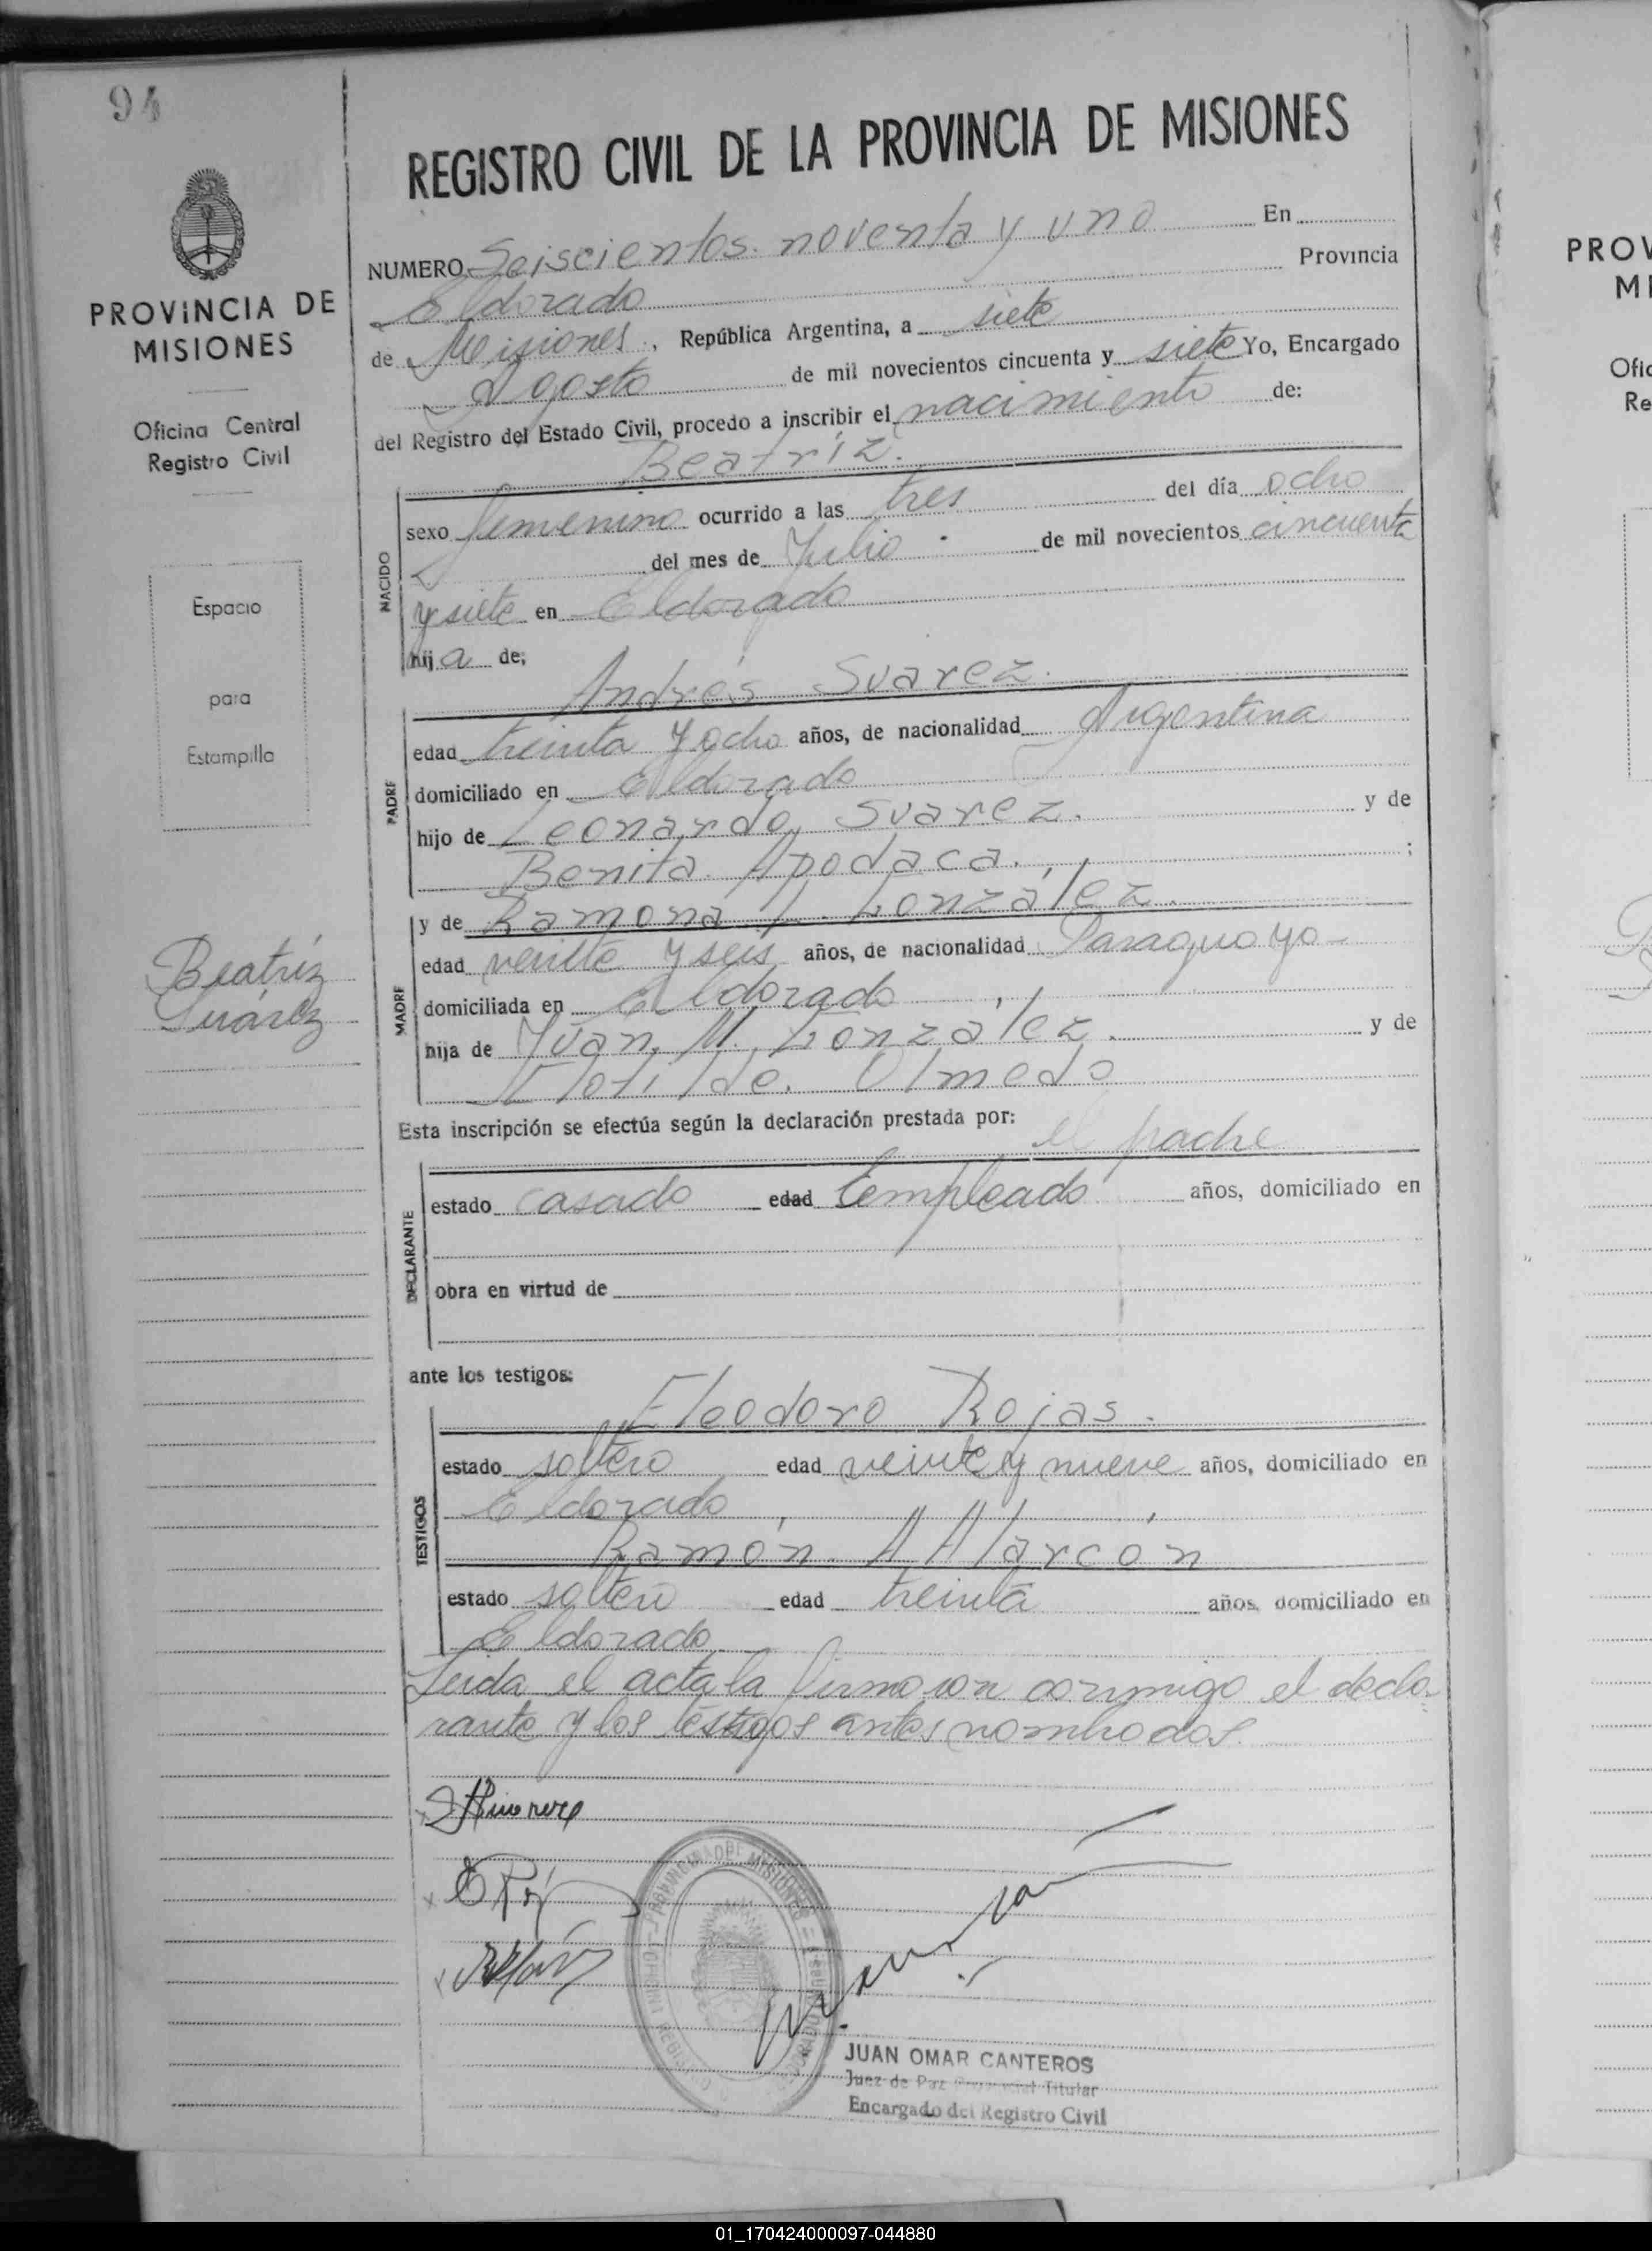 94
PROVINCIA DE
MISIONES
Oficina Central
Registro Civil
Espacio
para
Estampilla
Beatriz
Suárez
REGISTRO CIVIL DE LA PROVINCIA DE MISIONES
NUMERO Seiscientos noventa y uno En
Eldorado Provincia
de Misiones, República Argentina, a siete
Agosto de mil novecientos cincuenta y siete Yo, Encargado
del Registro del Estado Civil, procedo a inscribir el nacimiento de:
Beatríz.
NACIDO
sexo femenino ocurrido a las tres del día ocho
del mes de Julio de mil novecientos cincuenta
y siete en Eldorado
hija de;
Andrés Suarez.
PADRE
edad treinta y ocho años, de nacionalidad Argentina
domiciliado en Eldorado
hijo de Leonardo Suarez. y de
Benita Apodaca. ;
MADRE
y de Ramona González.
edad veinte y seis años, de nacionalidad Paraguaya
domiciliada en Eldorado
hija de Juan M. González. y de
Clotilde. Olmedo
Esta inscripción se efectúa según la declaración prestada por:
el padre
DECLARANTE
estado casado edad Empleado años, domiciliado en
obra en virtud de
ante los testigos:
Eleodoro Rojas.
TESTIGOS
estado soltero edad veinte y nueve años, domiciliado en
Eldorado
Ramón A Alarcón
estado soltero edad treinta años, domiciliado en
Eldorado
Leida el acta la firmaron conmigo el decla-
rante y los testigos antes nombrados.
PROVINCIA DE MISIONES
JUAN OMAR CANTEROS
Juez de Paz Provincial Titular
Encargado del Registro Civil
PROV
MI
Ofic
Re
01_170424000097-044880